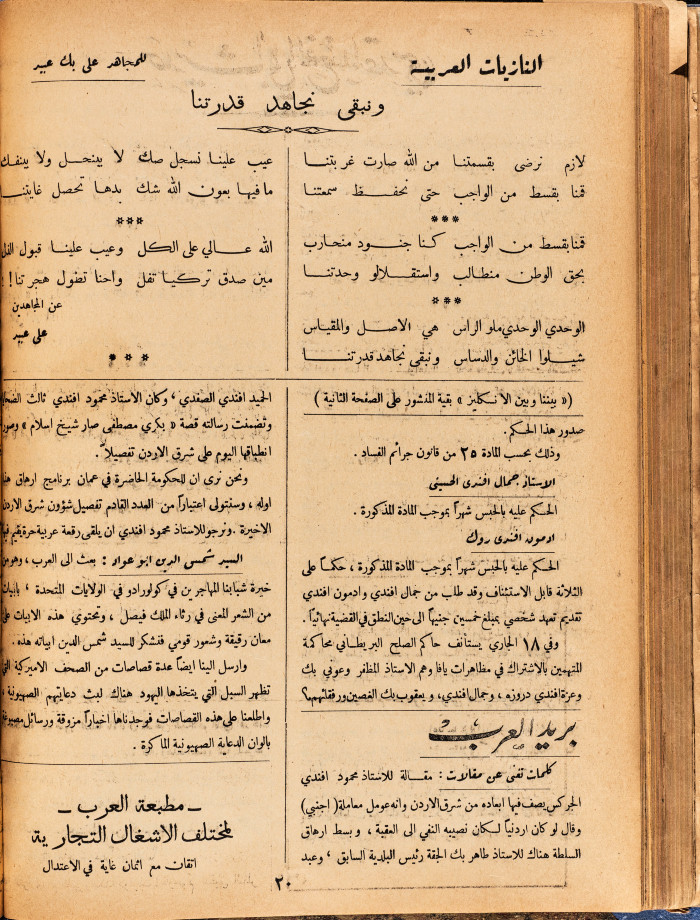 النازيات العربية
للمجاهد علي بك عبيد
ونبقى نجاهد قدرتنا
لازم نرضى بقسمتنا من الله صارت غربتنا
قمنا بقسط من الواجب حتى نحفظ سمعتنا
***
قمنا بقسط من الواجب كنا جنود منحارب
بحق الوطن منطالب واستقلالو وحدتنا
***
الوحدي الوحدي ملو الراس هي الاصل والمقياس
شيلوا الخائن والدساس ونبقى نجاهد قدرتنا
عيب علينا نسجل صك لا ينحل ولا ينفك
ما فيها بعون الله شك بدها تحصل غايتنا
***
الله عالي على الكل وعيب علينا قبول الذل
مين صدق تركيا تفل واحنا تطول هجرتنا!!
عن المجاهدين
علي عبيد
***
(« بيننا وبين الانكليز » بقية المنشور على الصفحة الثانية)
صدور هذا الحكم.
وذلك بحسب المادة ٢٥ من قانون جرائم الفساد.
الاستاذ جمال افندي الحسيني
الحكم عليه بالحبس شهراً بموجب المادة المذكورة.
ادمون افندي روك
الحكم عليه بالحبس شهراً بموجب المادة المذكورة، حكماً على
الثلاثة قابل الاستئناف وقد طلب من جمال افندي وادمون افندي
تقديم تعهد شخصي بمبلغ خمسين جنيهاً الى حين النطق في القضية نهائياً.
وفي ١٨ الجاري يستأنف حاكم الصلح البريطاني محاكمة
المتهمين بالاشتراك في مظاهرات يافا وهم الاستاذ المظفر وعوني بك
وعزة افندي دروزه، وجمال افندي، ويعقوب بك الغصين ورفقائهم؟
بريد العرب
كلمات تغني عن مقالات: مقالة للاستاذ محمود افندي
الجركس يصف فيها ابعاده من شرق الاردن وانه عومل معاملة (اجنبي)
وقال لو كان اردنياً لكان نصيبه النفي الى العقبة، وبسط ارهاق
السلطة هناك للاستاذ طاهر بك الجقة رئيس البلدية السابق، وعبد
الحميد افندي الصفدي، وكان الاستاذ محمود افندي ثالث
وتضمنت رسالته قصة « بكري مصطفى صار شيخ اسلام »
انطباقها اليوم على شرق الاردن تفصيلاً.
ونحن نرى ان للحكومة الحاضرة في عمان برنامج ارهاق هذا
اوله، وسنتولى اعتباراً من العدد القادم تفصيل شؤون شرق الاردن
الاخيرة. ونرجو للاستاذ محمود افندي ان يلقى رقعة عربية حرة يقيم فيها
السيد شمس الدين ابو عواد: بعث الى العرب، وهو من
خيرة شبابنا المهاجرين في كولورادو في الولايات المتحدة، بابيات
من الشعر المعنى في رثاء الملك فيصل، وتحتوي هذه الابيات على
معان رقيقة وشعور قومي فنشكر للسيد شمس الدين ابياته هذه.
وارسل الينا ايضاً عدة قصاصات من الصحف الاميركية التي
تظهر السبل التي يتخذها اليهود هناك لبث دعايتهم الصهيونية،
واطلعنا على هذه القصاصات فوجدناها اخباراً مزوقة ورسائل مصبوغة
بالوان الدعاية الصهيونية الماكرة.
— مطبعة العرب —
لمختلف الاشغال التجارية
اتقان مع اثمان غاية في الاعتدال
٢٠